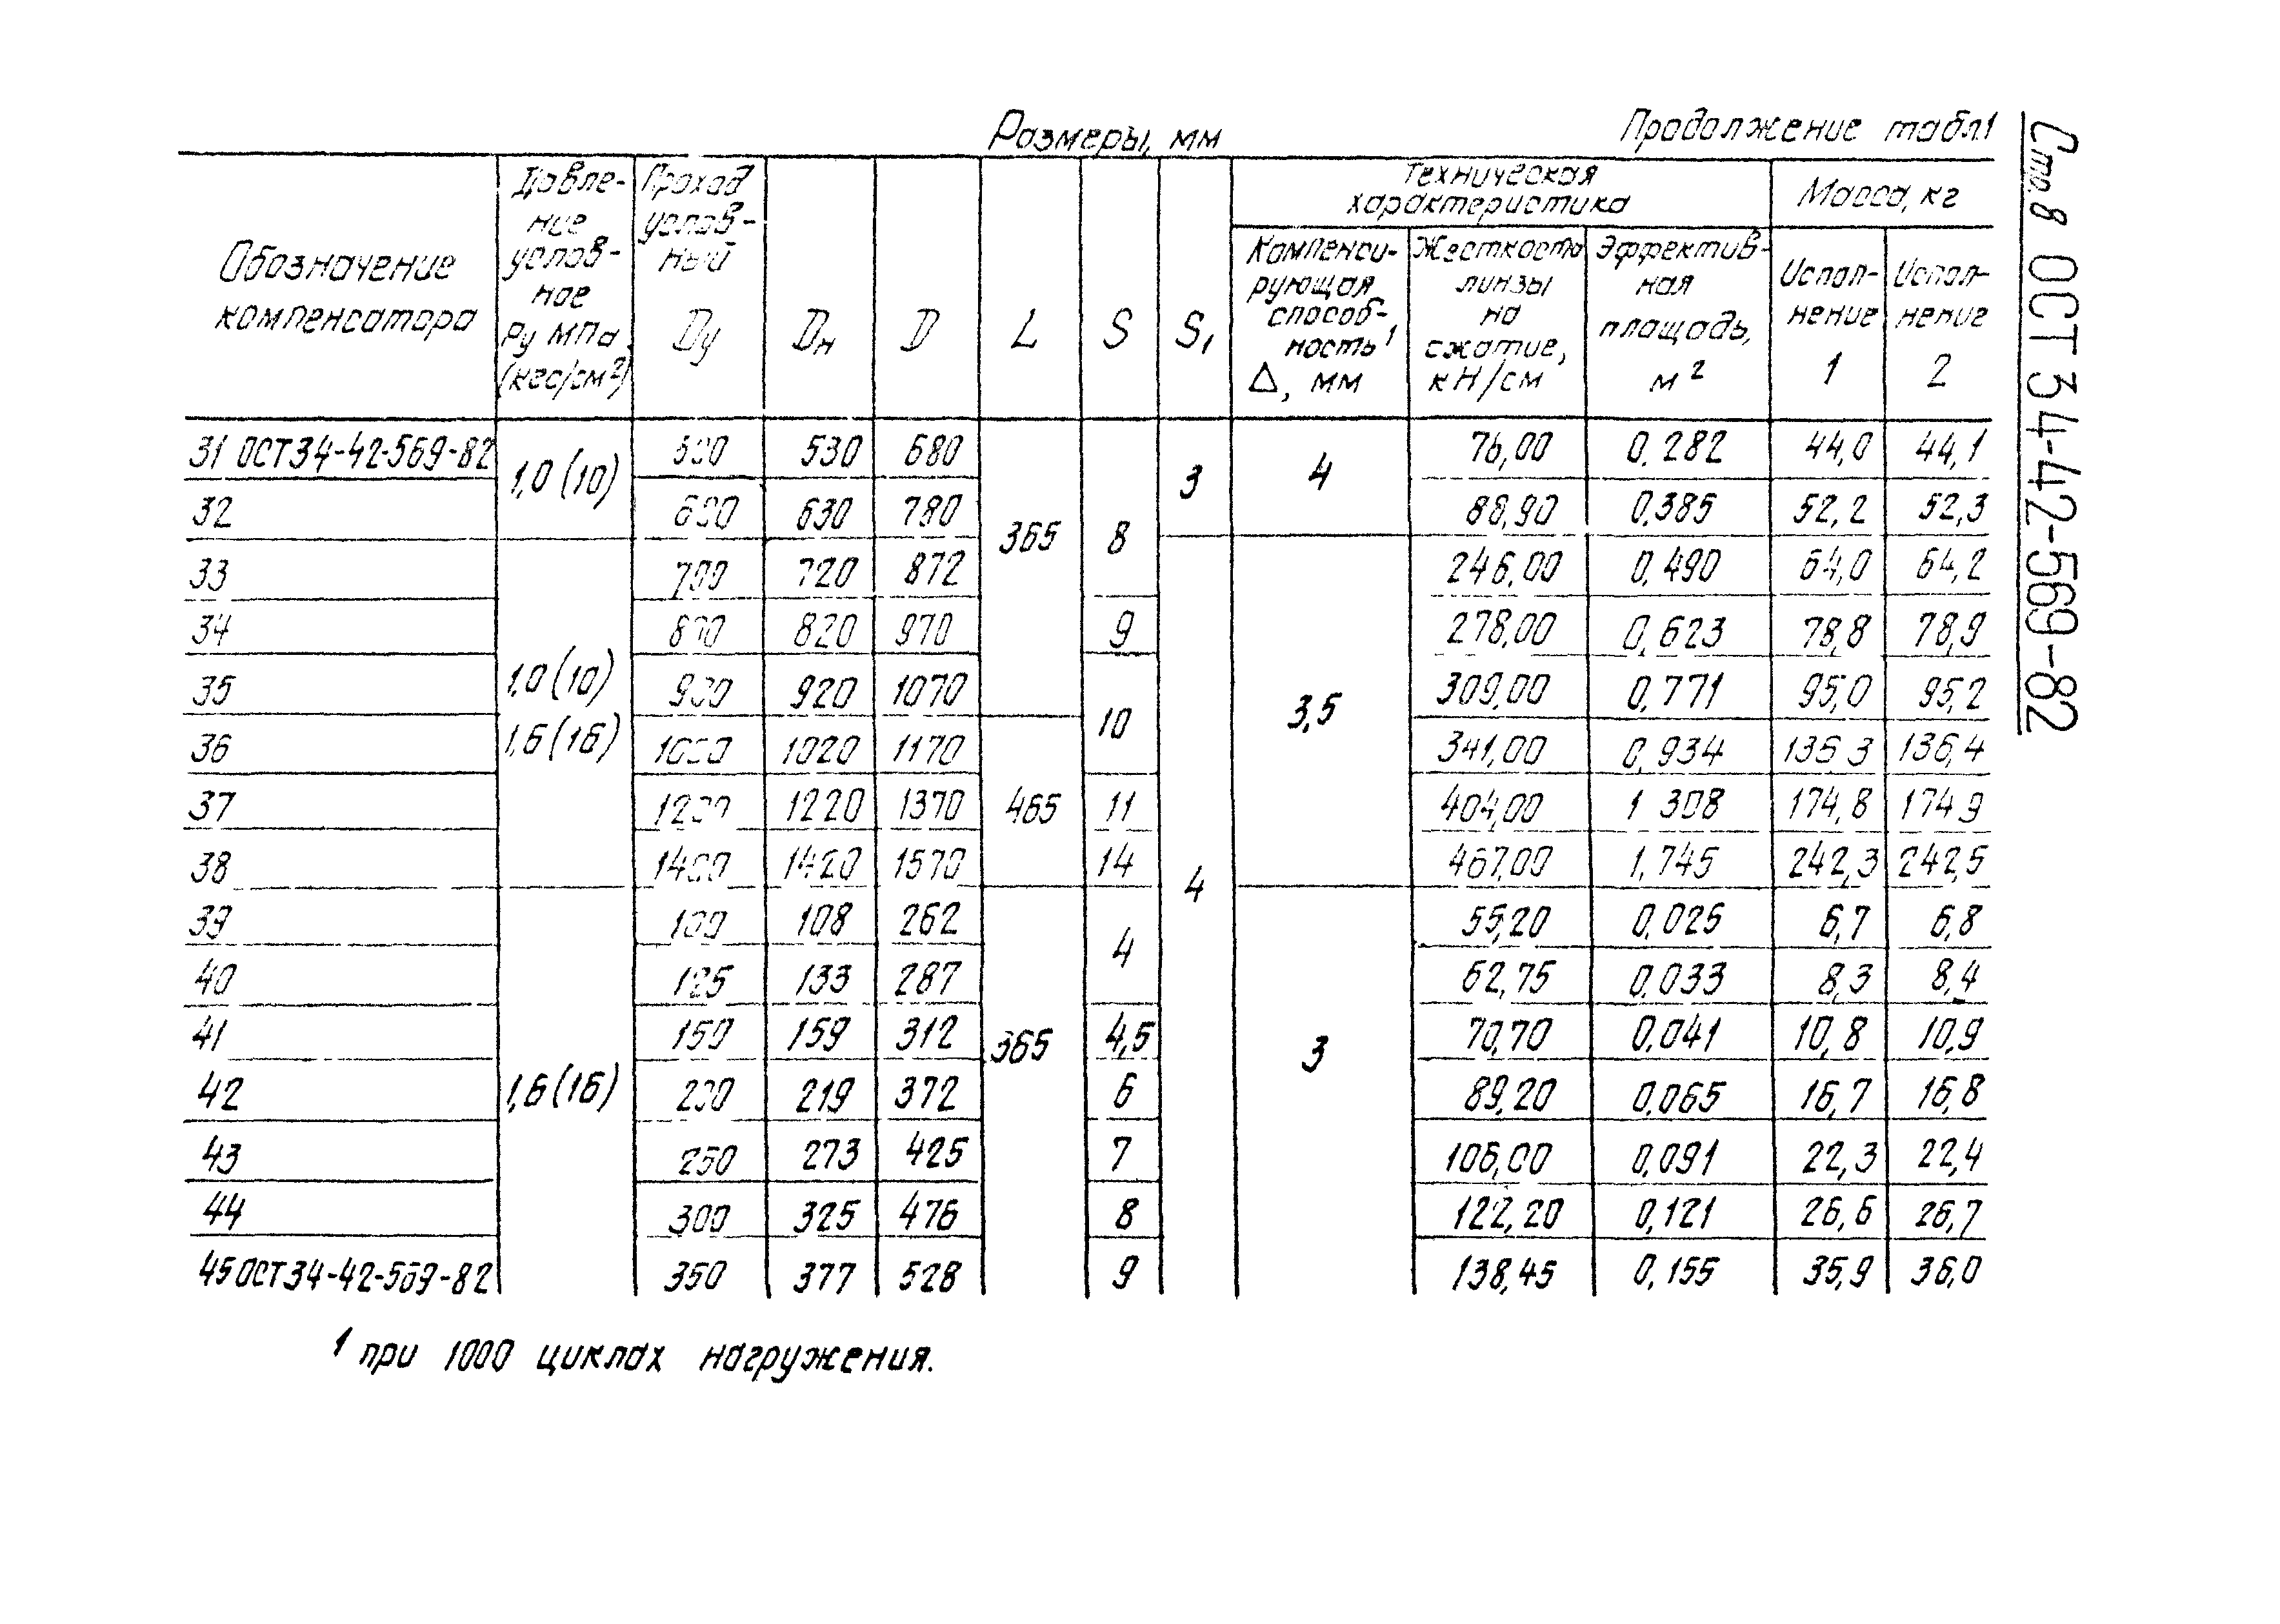 Размеры, мм
Продолжение табл.1
Стр. 8 ОСТ 34-42-569-82
Обозначение компенсатора
Давле-
ние
услов-
ное
Ру МПа
(кгс/см²)
Проход
услов-
ный
Dу
Dн
D
L
S
S1
Техническая
характеристика
Масса, кг
Компенси-
рующая
способ-
ность¹
Δ, мм
Жесткость
линзы
на
сжатие,
кН/см
Эффектив-
ная
площадь,
м²
Испол-
нение
1
Испол-
нение
2
31 ОСТ34-42-569-82 1,0 (10) 500 530 680 365 8 3 4 76,00 0,282 44,0 44,1
32 600 630 780 88,90 0,385 52,2 52,3
33 1,0 (10) 1,6 (16) 700 720 872 4 3,5 246,00 0,490 64,0 64,2
34 800 820 970 9 278,00 0,623 78,8 78,9
35 900 920 1070 10 309,00 0,771 95,0 95,2
36 1000 1020 1170 465 341,00 0,934 136 3 136,4
37 1200 1220 1370 11 404,00 1 308 174,8 174 9
38 1400 1420 1570 14 467,00 1,745 242,3 242,5
39 1,6 (16) 100 108 262 365 4 3 55,20 0,025 6,7 6,8
40 125 133 287 62,75 0,033 8,3 8,4
41 150 159 312 4,5 70,70 0,041 10,8 10,9
42 200 219 372 6 89,20 0,065 16,7 16,8
43 250 273 425 7 106,00 0,091 22,3 22,4
44 300 325 476 8 122,20 0,121 26,6 26,7
45 ОСТ34-42-569-82 350 377 528 9 138,45 0,155 35,9 36,0
¹ при 1000 циклах нагружения.